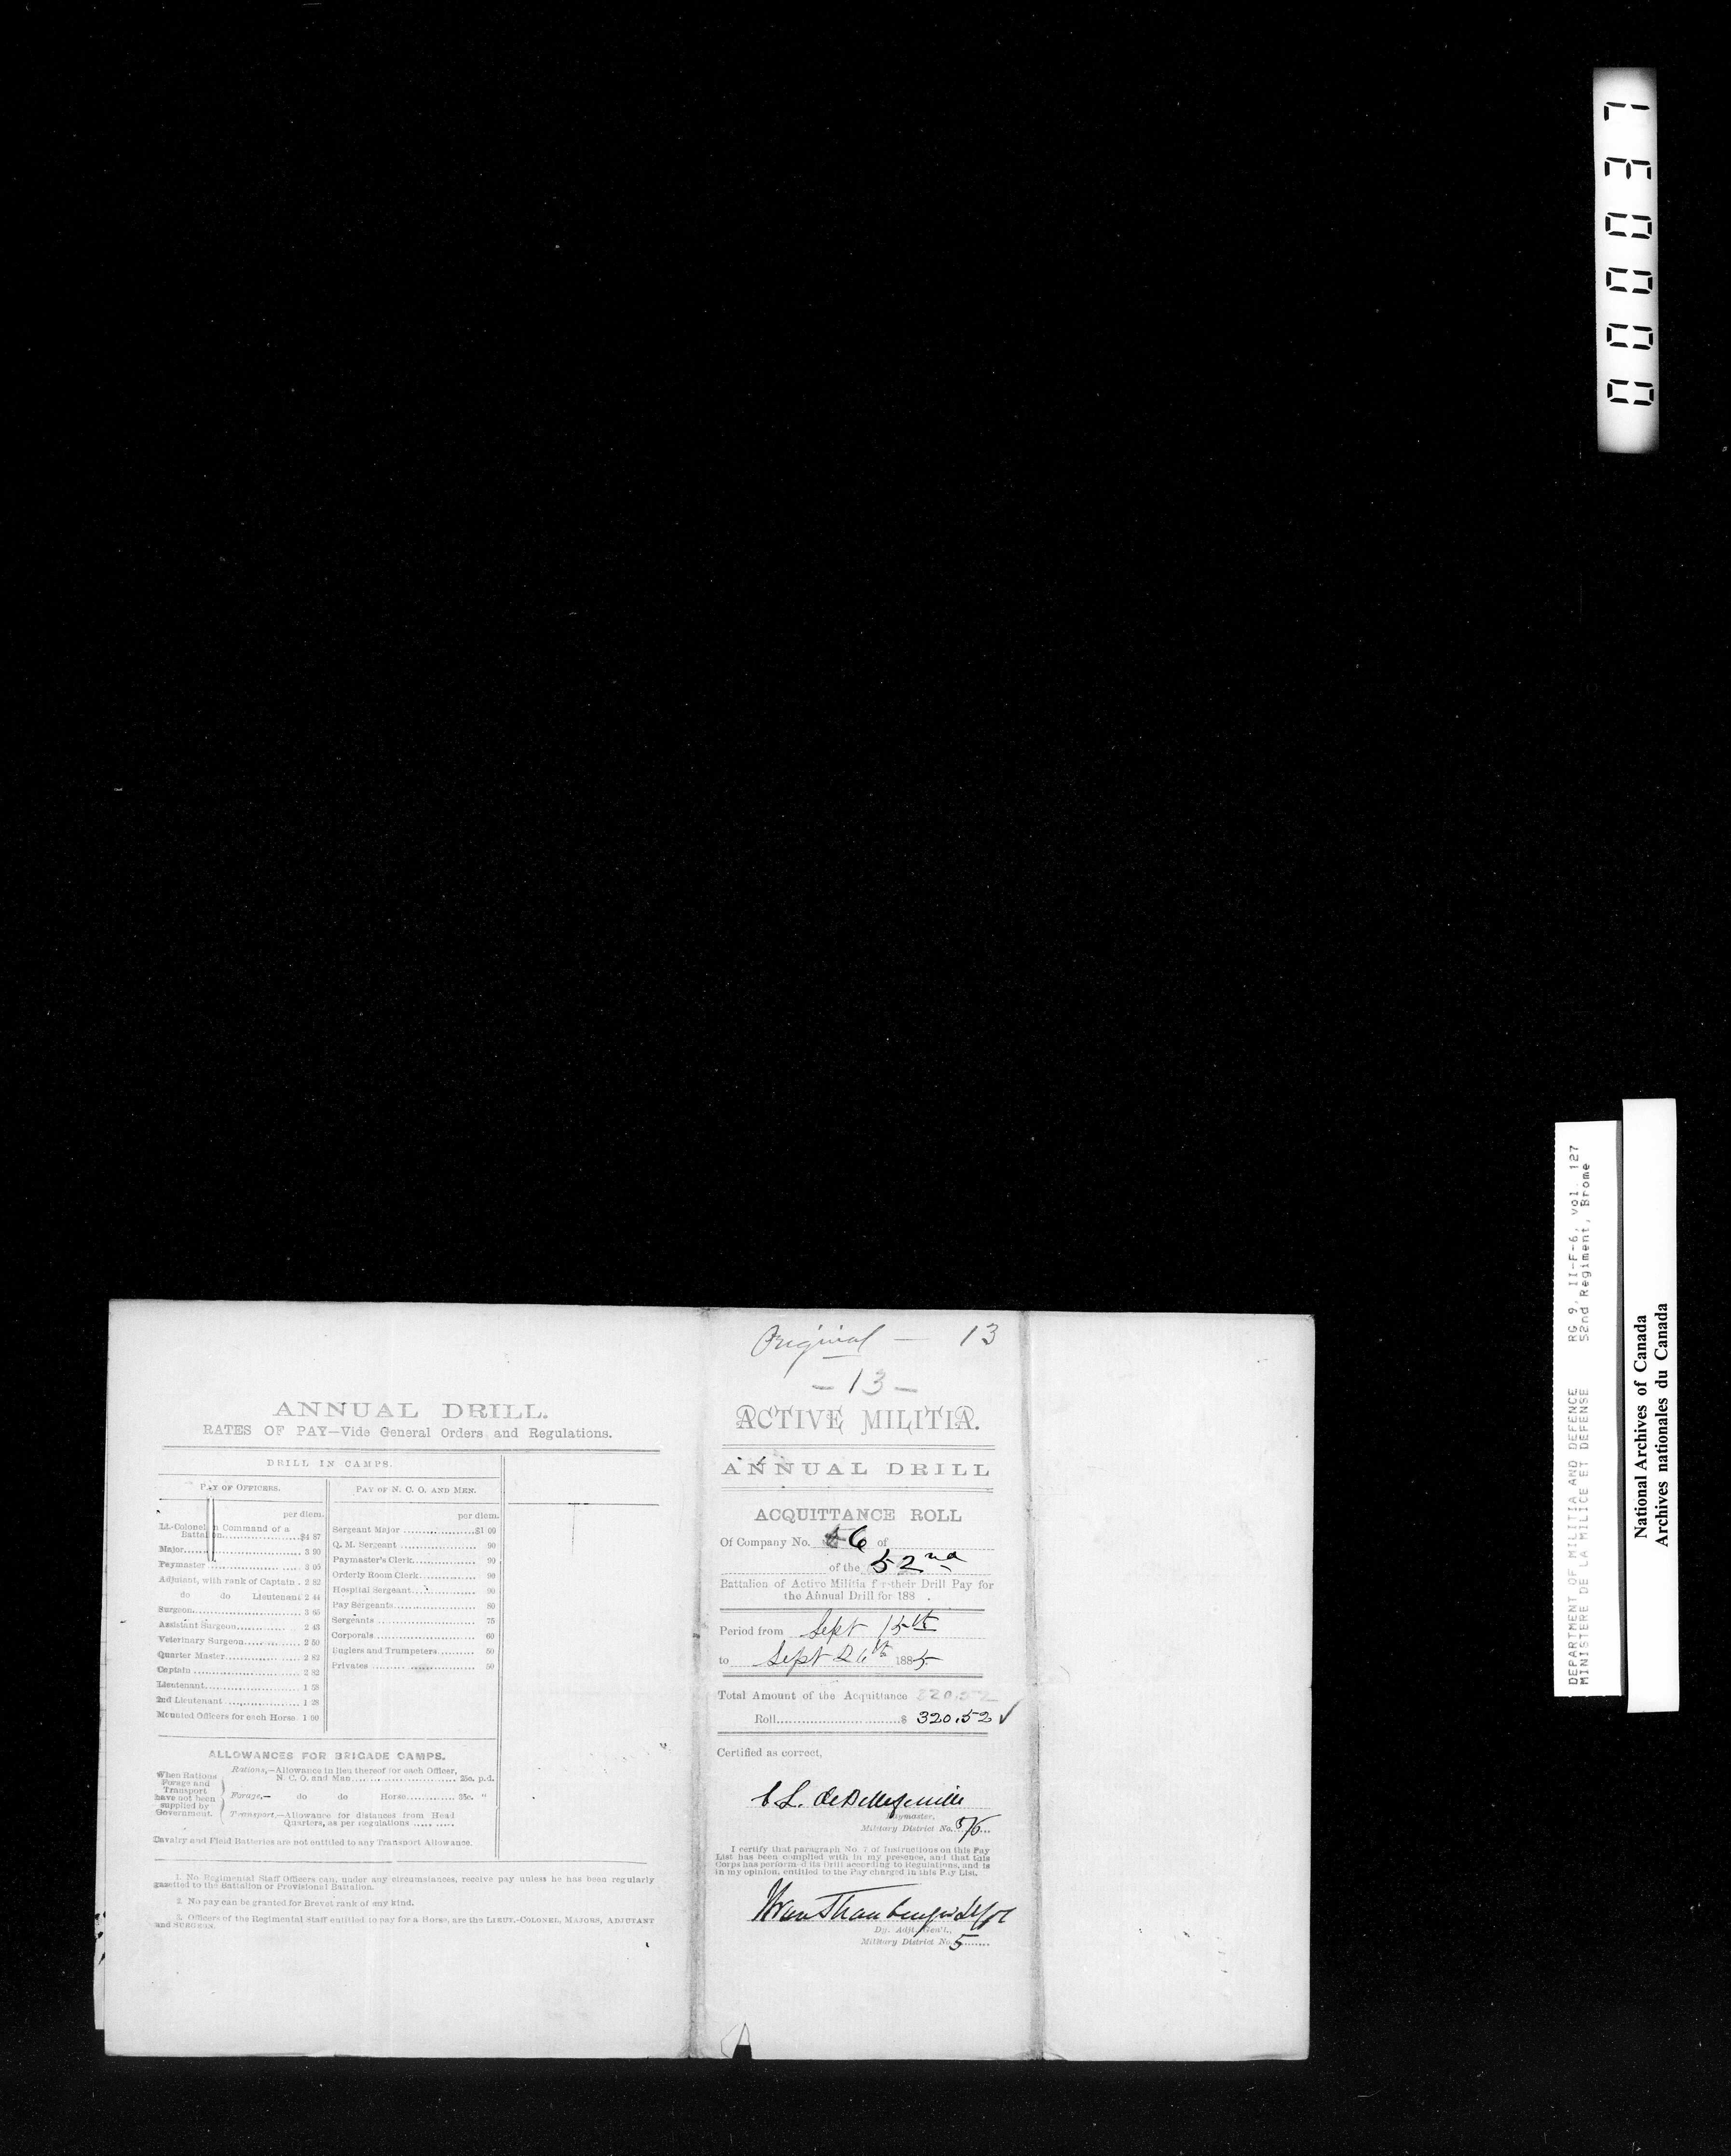 000037
DEPARTMENT OF MILITIA AND DEFENCE RG 9, II-F-6, vol. 127
MINISTERE DE LA MILICE ET DEFENSE 52nd Regiment, Brome
National Archives of Canada
Archives nationales du Canada
ANNUAL DRILL.
RATES OF PAY—Vide General Orders and Regulations.
DRILL IN CAMPS.
PAY OF OFFICERS.
per diem.
Lt-Colonel in Command of a
Battalion..................$4 87
Major.............................. 3 90
Paymaster ..................... 3 05
Adjutant, with rank of Captain . 2 82
do do Lieutenant 2 44
Surgeon........................... 3 65
Assistant Surgeon............ 2 43
Veterinary Surgeon............ 2 50
Quarter Master.................. 2 82
Captain ........................... 2 82
Lieutenant........................ 1 58
2nd Lieutenant .................. 1 28
Mounted Officers for each Horse. 1 00
PAY OF N. C. O. AND MEN.
per diem.
Sergeant Major ..................$1 00
Q. M. Sergeant .................. 90
Paymaster's Clerk............... 90
Orderly Room Clerk............ 90
Hospital Sergeant............... 90
Pay Sergeants..................... 80
Sergeants ........................ 75
Corporals ........................ 60
Buglers and Trumpeters......... 50
Privates ........................ 50
ALLOWANCES FOR BRIGADE CAMPS.
When Rations
Forage and
Transport
have not been
supplied by
Government.
Rations,—Allowance in lieu thereof for each Officer,
N. C. O. and Man........................... 25c. p.d.
Forage,— do do Horse............ 35c. "
Transport,—Allowance for distances from Head
Quarters, as per Regulations ..... .....
Cavalry and Field Batteries are not entitled to any Transport Allowance.
1. No Regimental Staff Officers can, under any circumstances, receive pay unless he has been regularly
gazetted to the Battalion or Provisional Battalion.
2. No pay can be granted for Brevet rank of any kind.
3. Officers of the Regimental Staff entitled to pay for a Horse, are the LIEUT.-COLONEL, MAJORS, ADJUTANT
and SURGEON.
Original — 13
- 13 -
ACTIVE MILITIA.
ANNUAL DRILL
ACQUITTANCE ROLL
Of Company No. 6 of
of the 52nd
Battalion of Active Militia for their Drill Pay for
the Annual Drill for 188 .
Period from Sept 15th
to Sept 26th 1885
Total Amount of the Acquittance 320.52
Roll..............................$ 320.52 ✓
Certified as correct,
Paymaster,
Military District No. 5/6
I certify that paragraph No. 7 of Instructions on this Pay
List has been complied with in my presence, and that this
Corps has performed its Drill according to Regulations, and is
in my opinion, entitled to the Pay charged in this Pay List.
Dy. Adjt. Gen'l.,
Military District No. 5